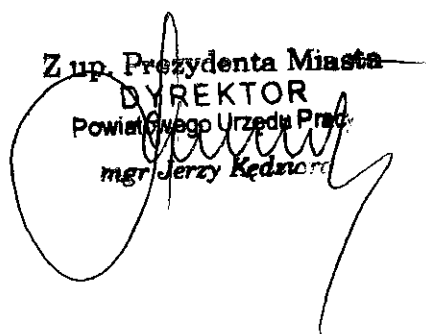 Z up. Prezydenta Miasta
DYREKTOR
Powiatowego Urzędu Pracy
mgr Jerzy